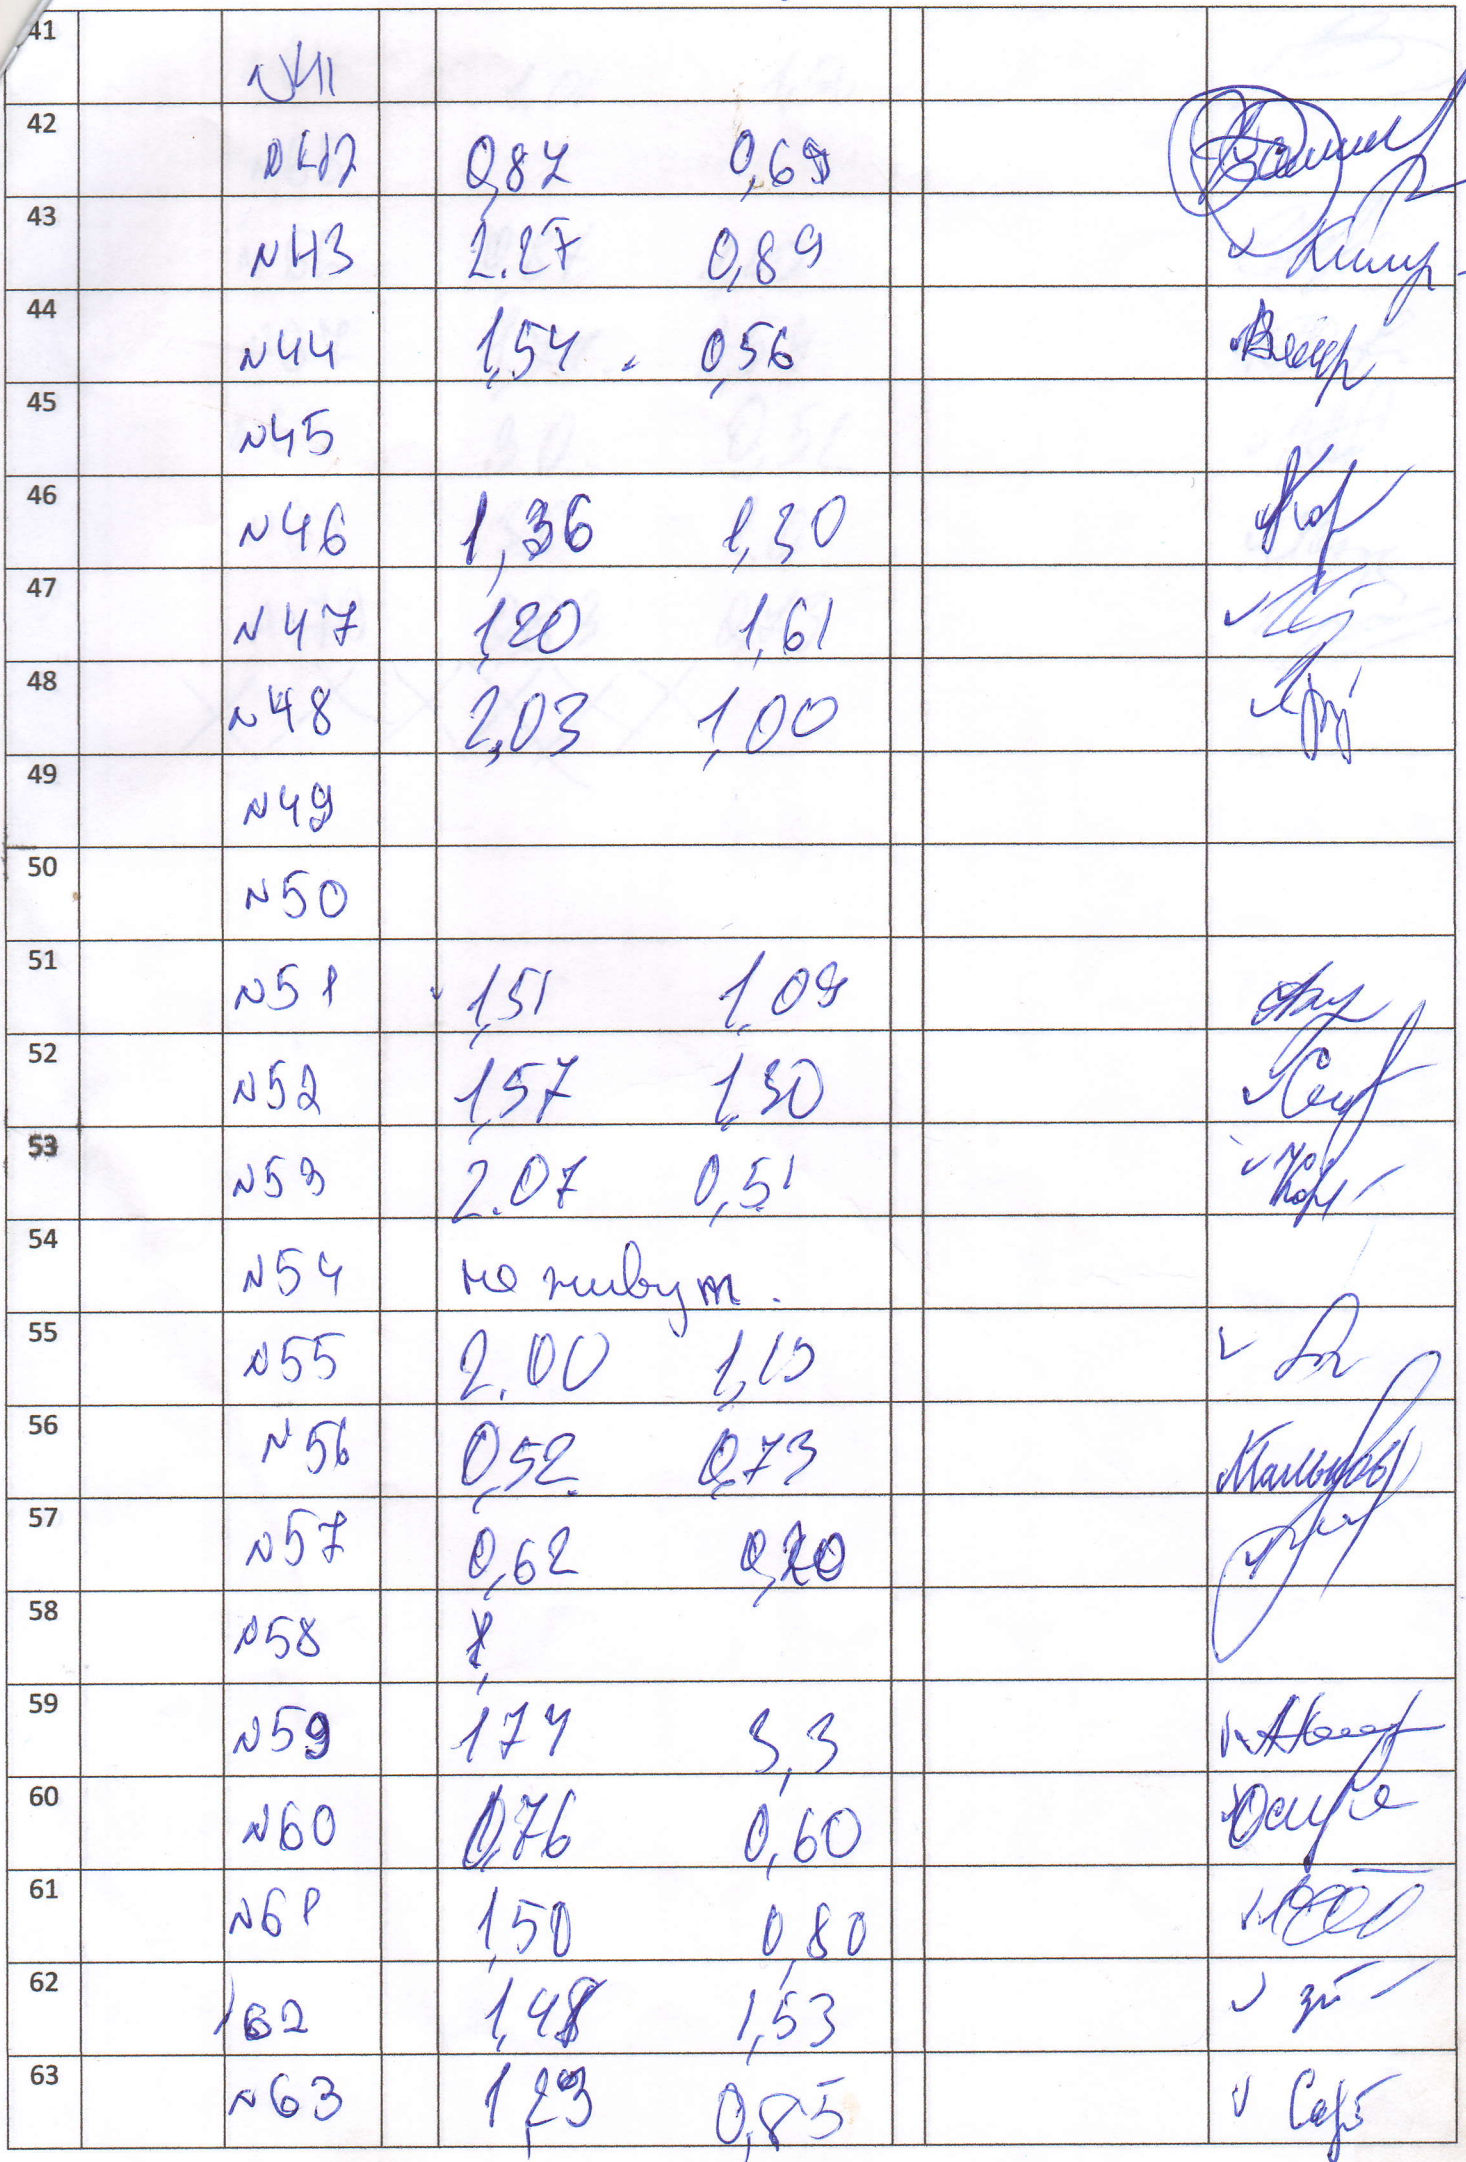 41 N41
42 N42 0,87 0,69
43 N43 2.27 0,89
44 N44 1,54 0,56
45 N45
46 N46 1,36 1,30
47 N47 1,20 1,61
48 N48 2,03 1,00
49 N49
50 N50
51 N51 1,51 1,09
52 N52 1,57 1,30
53 N53 2.07 0,51
54 N54 не живут.
55 N55 2.00 1,15
56 N56 0,52 0,73
57 N57 0,62
58 N58
59 N59 1,74 3,3
60 N60 0,76 0,60
61 N61 1,50 0,80
62 62 1,48 1,53
63 N63 1,23 0,85